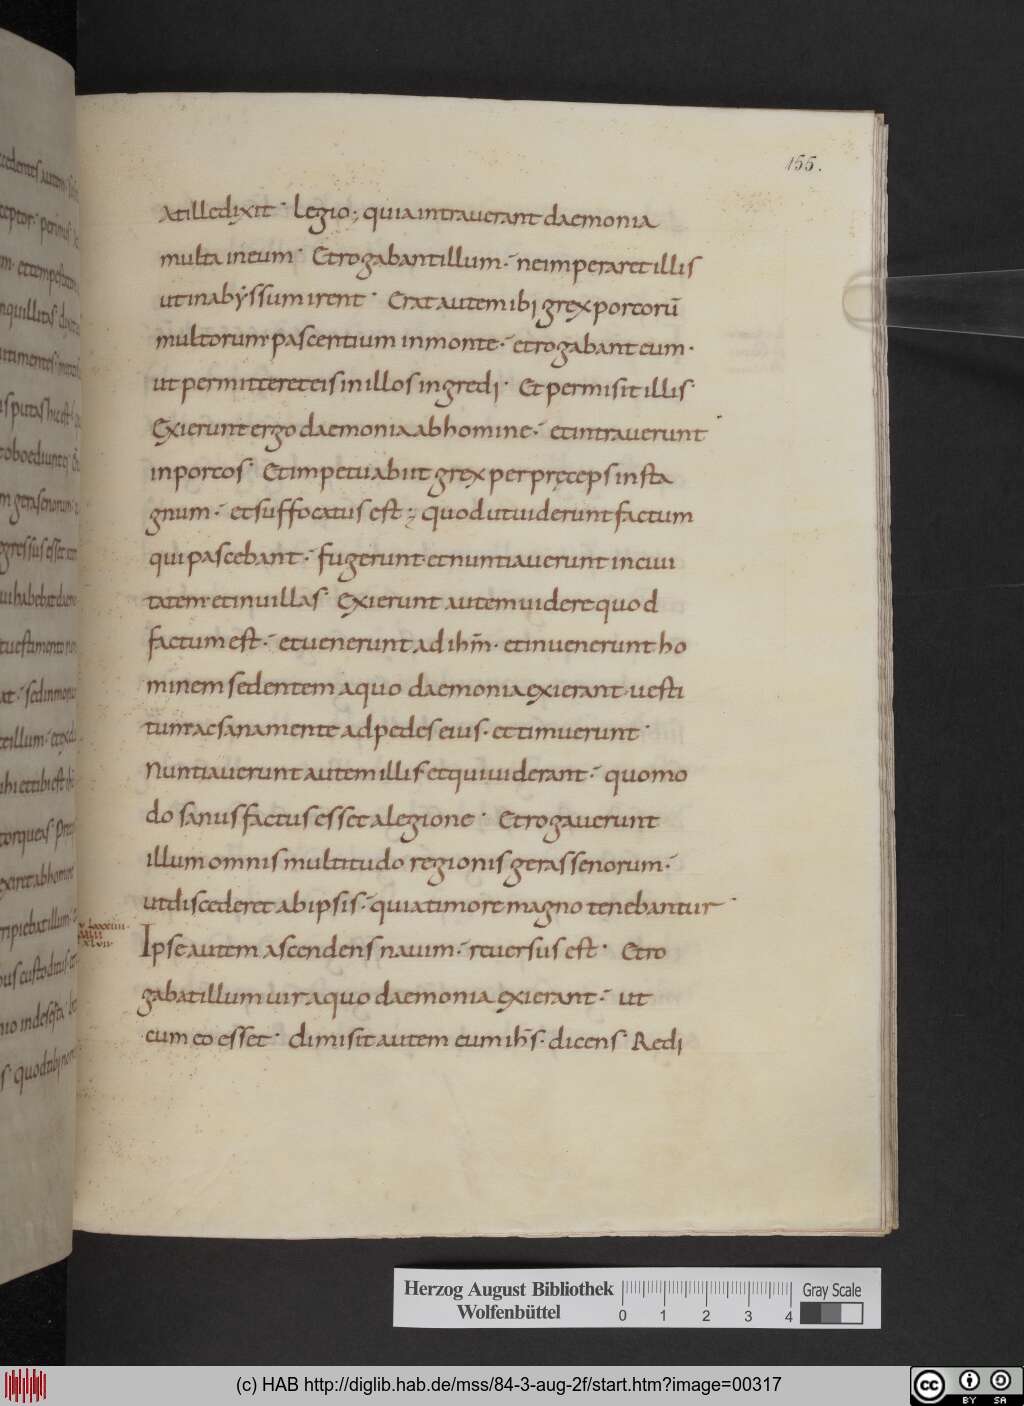 155.
At ille dixit· Legio·; quia intrauerant daemonia
multa in eum· Et rogabant illum·- ne imperaret illis
ut in abẏssum irent· Erat autem ibi grex porcorū
multorum· pascentium in monte·- et rogabant eum·
ut permitteret eis in illos ingredi· Et permisit illis·
Exierunt ergo daemonia ab homine·- et intrauerunt
in porcos· Et impetu abiit grex per pręceps in sta
gnum·- et suffocatus est·; quod ut uiderunt factum
qui pascebant·- fugerunt· et nuntiauerunt in ciui
tatem· et in uillas· Exierunt autem uidere quod
factum est·- et uenerunt ad ihm̄· et inuenerunt ho
minem sedentem a quo daemonia exierant· uesti
tum· ac sana mente ad pedes eius· et timuerunt·
Nuntiauerunt autem illis et qui uiderant·- quomo
do sanus factus esset a legione· Et rogauerunt
illum omnis multitudo regionis gerassenorum·-
ut discederet ab ipsis·- quia timore magno tenebantur·
Ipse autem ascendens nauim·- reuersus est· Et ro
gabat illum uir a quo daemonia exierant·- ut
cum eo esset· dimisit autem eum ihs̄· dicens· Redi
Herzog August Bibliothek
Wolfenbüttel
0 1 2 3 4
Gray Scale
(c) HAB http://diglib.hab.de/mss/84-3-aug-2f/start.htm?image=00317
cc BY SA